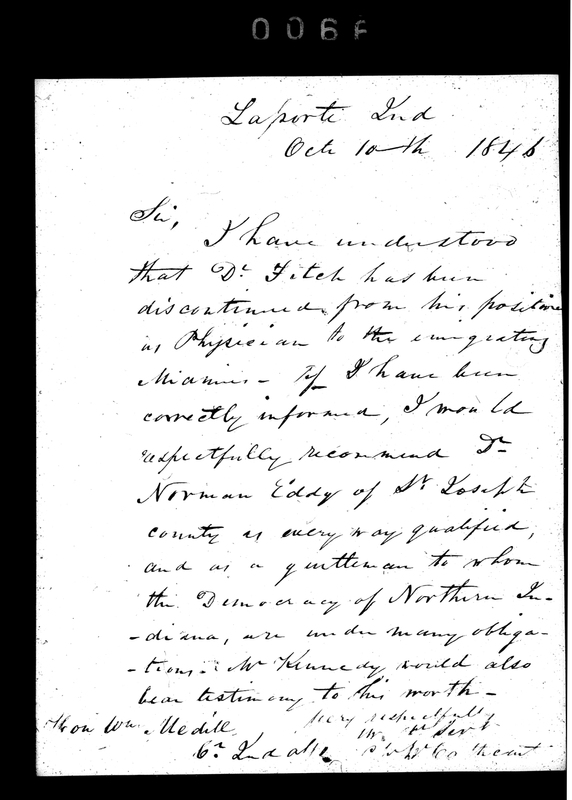 0066
Laporte Ind
Oct 10th 1846
Sir,
I have understood
that Dr. Fitch has been
discontinued from his position
as Physician to the emigrating
Miamies - If I have been
correctly informed, I would
respectfully recommend Dr
Norman Eddy of St Joseph
county as every way qualified,
and as a gentleman to whom
the Democracy of Northern In-
-diana, are under many obliga-
-tions - Mr Kennedy would also
bear testimony to his worth -
Very respectfully
Hon Wm Medill
Yr
Svt
Cr Ind affs